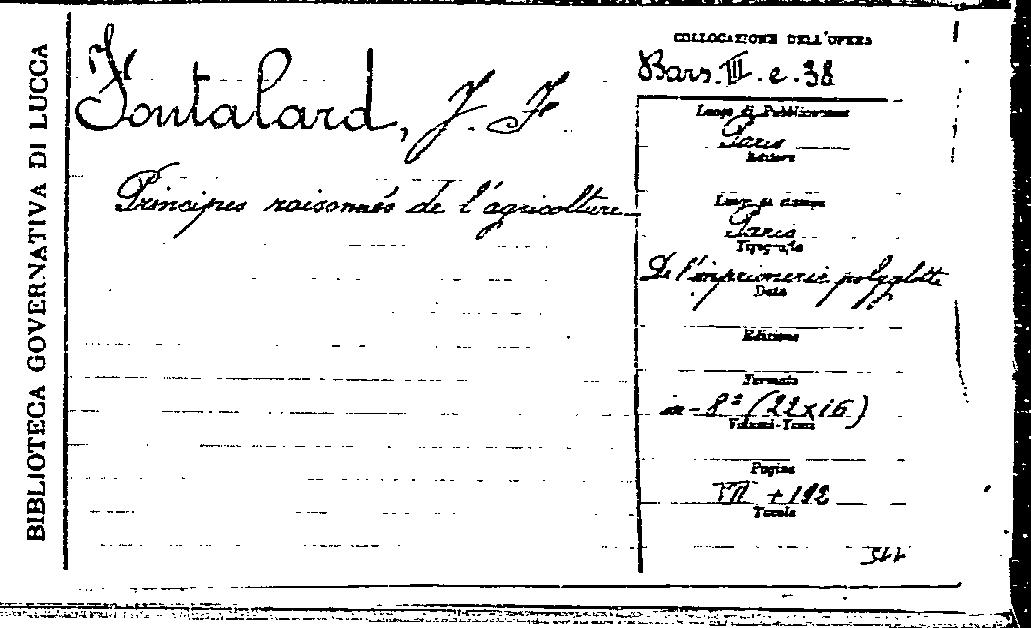 BIBLIOTECA GOVERNATIVA DI LUCCA
Fontalard, J. F.
Principes raisonnés de l'agricolture
COLLOCAZIONE DELL'OPERA
Bars. III. e. 38
Luogo di Pubblicazione
Paris
Editore
Luogo di stampa
Paris
Tipografia
De l'imprimerie polyglotte
Data
Edizione
Formato
in-8º (22x16)
Volumi-Tomi
Pagine
VII + 192
Tavole